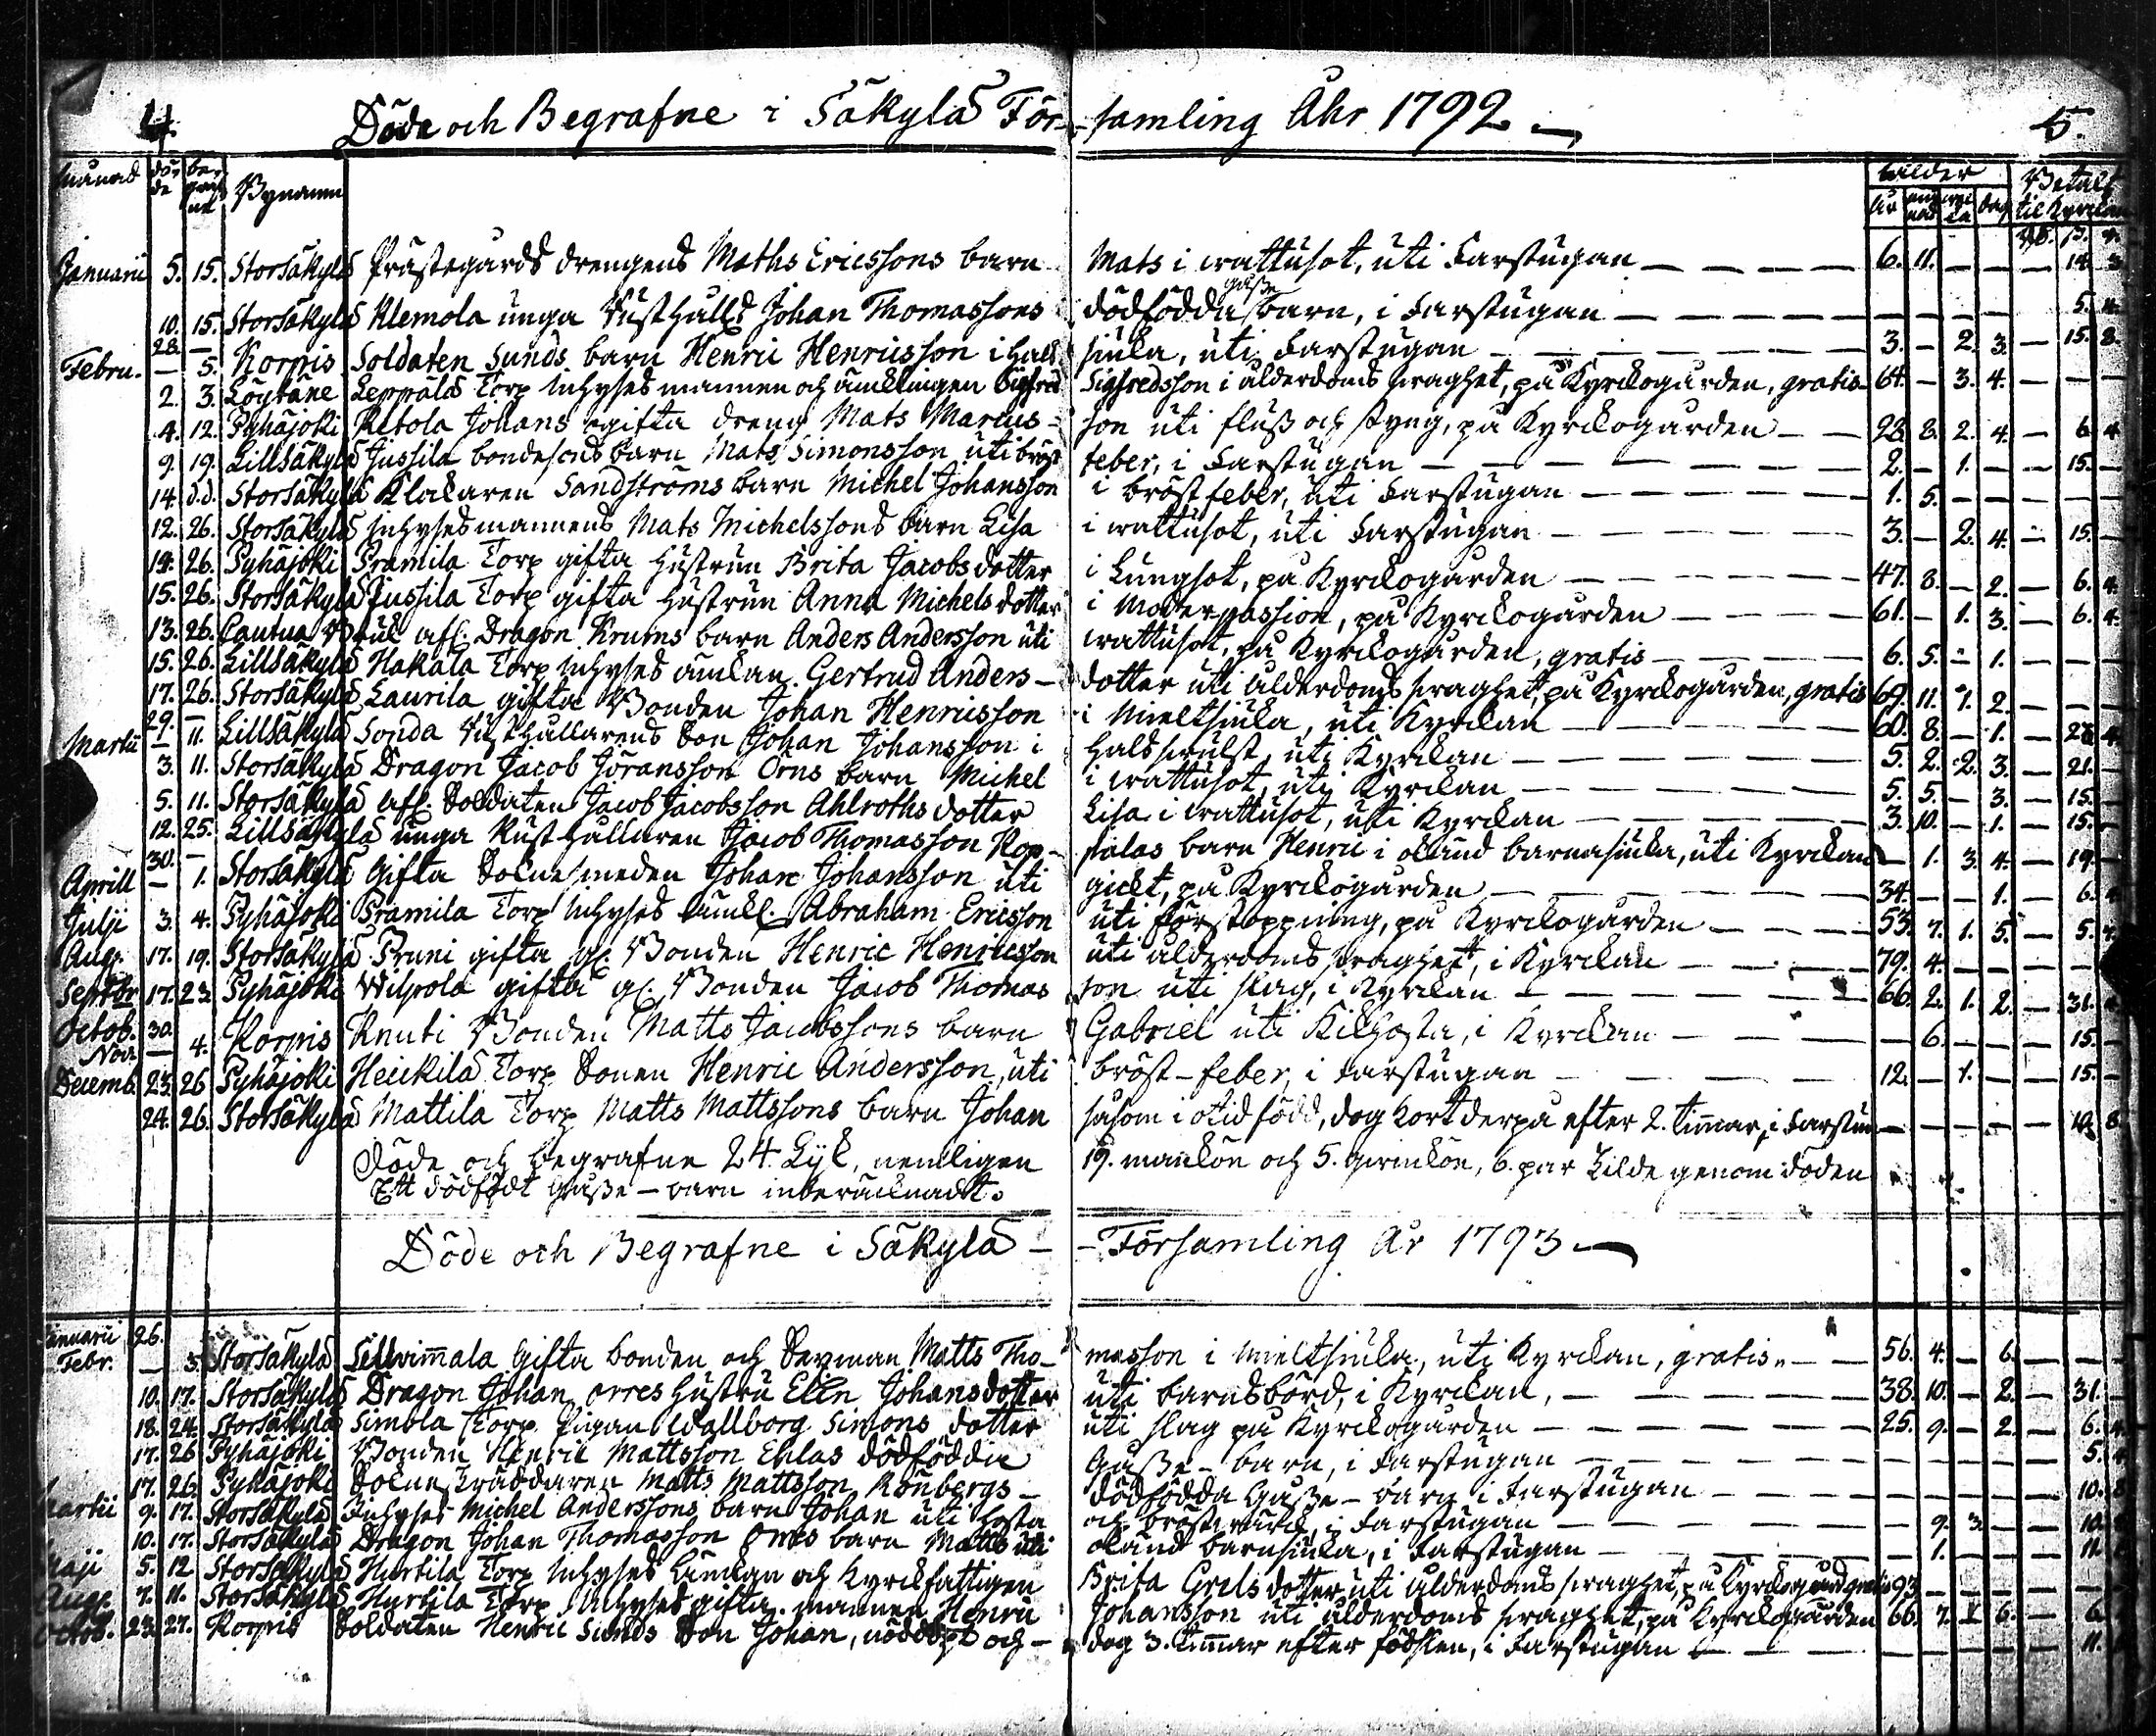 4. Döde och Begrafne i Säkylä För- samling Åhr 1792 5.
månad dö-de be-graf-ne Bynamn ålder Betalt
år må-nad vec-ka dag til Kyrckan
Januarii 5. 15. Storsäkylä Prästegårds drengens Maths Ericssons barn Mats i wattusot, uti Farstugan 6. 11. 14.
10. 15. Storsäkylä Klemola unga Rusthålls Johan Thomassons dödfödda gosse barn, i Farstugan 5. 4.
28. —
Febru. — 5. Korpis Soldaten Sunds barn Henric Henricsson i hals siuka, uti Farstugan 3. — 2. 3. — 15. 8.
2. 3. Löytäne Leppälä Torp Inhyses mannen och änklingen Sigfred Sigfredsson i ålderdoms swaghet, på Kyrckogården, gratis 64. — 3. 4.
4. 12. Pyhäjoki Ketola Johans ogifta dreng Mats Marcus- son uti fluss och styng, på Kyrckogården 23. 8. 2. 4. — 6. 4.
9. 19. Lillsäkylä Jussila bondesons barn Mats Simonsson uti bröst feber, i Farstugan 2. — 1. — 15.
14. d.d. Storsäkylä Klockaren Sandströms barn Michel Johansson i bröstfeber, uti Farstugan 1. 5.
12. 26. Storsäkylä Inhysesmannens Mats Michelssons barn Lisa i wattusot, uti Farstugan 3. — 2. 4. — 15.
14. 26. Pyhäjoki Pramila Torp gifta hustrun Brita Jacobs dotter i Lungsot, på Kyrckogården 47. 8. — 2. — 6. 4.
15. 26. Storsäkylä Jussila Torp gifta hustrun Anna Michels dotter i Moderpassion, på Kyrckogården 61. — 1. 3. — 6. 4.
13. 26. Cautua Bruk afl. Dragon Krums barn Anders Andersson uti wattusot, på Kyrckogården, gratis 6. 5. — 1.
15. 26. Lillsäkylä Hakala Torp Inhyses änkan Gertrud Anders- dotter uti ålderdoms swaghet, på Kyrckogården, gratis 69. 11. 1. 2.
17. 26. Storsäkylä Laurila gifta Bonden Johan Henricsson i Mieltsiuka, uti Kyrckan 60. 8. — 1. — 28. 4.
29. —
Martii — 11. Lillsäkylä Sonda Rusthållarens Son Johan Johansson i halsswulst, uti Kyrckan 5. 2. 2. 3. — 21.
3. 11. Storsäkylä Dragon Jacob Jöransson Örns barn Michel i wattusot, uti Kyrckan 5. 5. — 3. — 15.
5. 11. Storsäkylä afl. Soldaten Jacob Jacobsson Ahlroths dotter Lisa i wattusot, uti Kyrckan 3. 10. — 1. — 15.
12. 25. Lillsäkylä unga Rusthållaren Jacob Thomasson Kop- palas barn Henric i okänd barnasiuka, uti Kyrckan — 1. 3. 4. — 19.
30. —
Aprill — 1. Storsäkylä Gifta Sockne smeden Johan Johansson uti gickt, på Kyrckogården 34. — — 1. — 6.
Julii 3. 4. Pyhäjoki Pramila Torp Inhyses änkl. Abraham Ericsson uti förstoppning, på Kyrckogården 53. 7. 1. 5. — 5.
Aug. 17. 19. Storsäkylä Pruni gifta gl. Bonden Henric Henricsson uti ålderdoms swaghet, i Kyrckan 79. 4.
Septbr 17. 23. Pyhäjoki Wilpola gifta gl. Bonden Jacob Thomas son uti slag, i Kyrckan 66. 2. 1. 2. — 31.
Octob. 30.
Nov. — 4. Korpis Knuti Bonden Matts Jacobssons barn Gabriel uti Kikhosta, i Kyrckan — 6. — — — 15.
Decemb. 23. 26 Pyhäjoki Heickilä Torp Sonen Henric Andersson, uti bröst-feber, i Farstugan 12. — 1. — — 15.
24. 26. Storsäkylä Mattila Torp Matts Mattssons barn Johan såsom i otid född, dog kort derpå efter 2. timmar, i Farstun
Döde och begrafne 24. Lijk, nemligen 19. mankön och 5. qvinkön, 6. par Skilde genom döden
Ett dödfödt gosse-barn inberäcknadt.
Döde och Begrafne i Säkylä — Församling År 1793
Januarii 26.
Febr. — 3. Storsäkylä Sillwimmala Gifta bonden och Sexman Matts Tho- masson i Mieltsiuka, uti Kyrckan, gratis 56. 4. — 6.
10. 17. Storsäkylä Dragon Johan Orres hustru Elin Johansdotter uti barnsbörd, i Kyrckan, 38. 10. — 2. — 31.
18. 24. Storsäkylä Simola Torp Pigan Wallborg Simons dotter uti slag på Kyrckogården 25. 9. — 2. — 6.
17. 26 Pyhäjoki Bonden Henric Mattsson Ehlas dödfödda Gosse-barn, i Farstugan 5.
17. 26. Pyhäjoki Sockne Skräddaren Matts Mattsson Rönbergs- dödfödda Gosse-barn i Farstugan 10.
Martii 9. 17. Storsäkylä Inhyses Michel Anderssons barn Johan uti hosta och bröstwärck, i Farstugan — 9. 3. — — 10.
10. 17. Storsäkylä Dragon Johan Thomasson Orres barn Matts uti okänd barnsiuka, i Farstugan — 1. — — — 11.
Maji 5. 12 Storsäkylä Hurtila Torp Inhyses Änkan och Kyrckfattigen Brita Grels dotter uti ålderdoms swaghet, på Kyrckogård gratis 93.
Aug. 7. 11. Storsäkylä Hurtila Torp Inhyses gifta mannen Henric Johansson uti ålderdoms swaghet, på Kyrckogården 66. 7. 1 6. — 6
Octob. 23. 27. Korpis Soldaten Henric Sunds Son Johan, nöddöpt och dog 3. timmar efter födslen, i Farstugan 11.